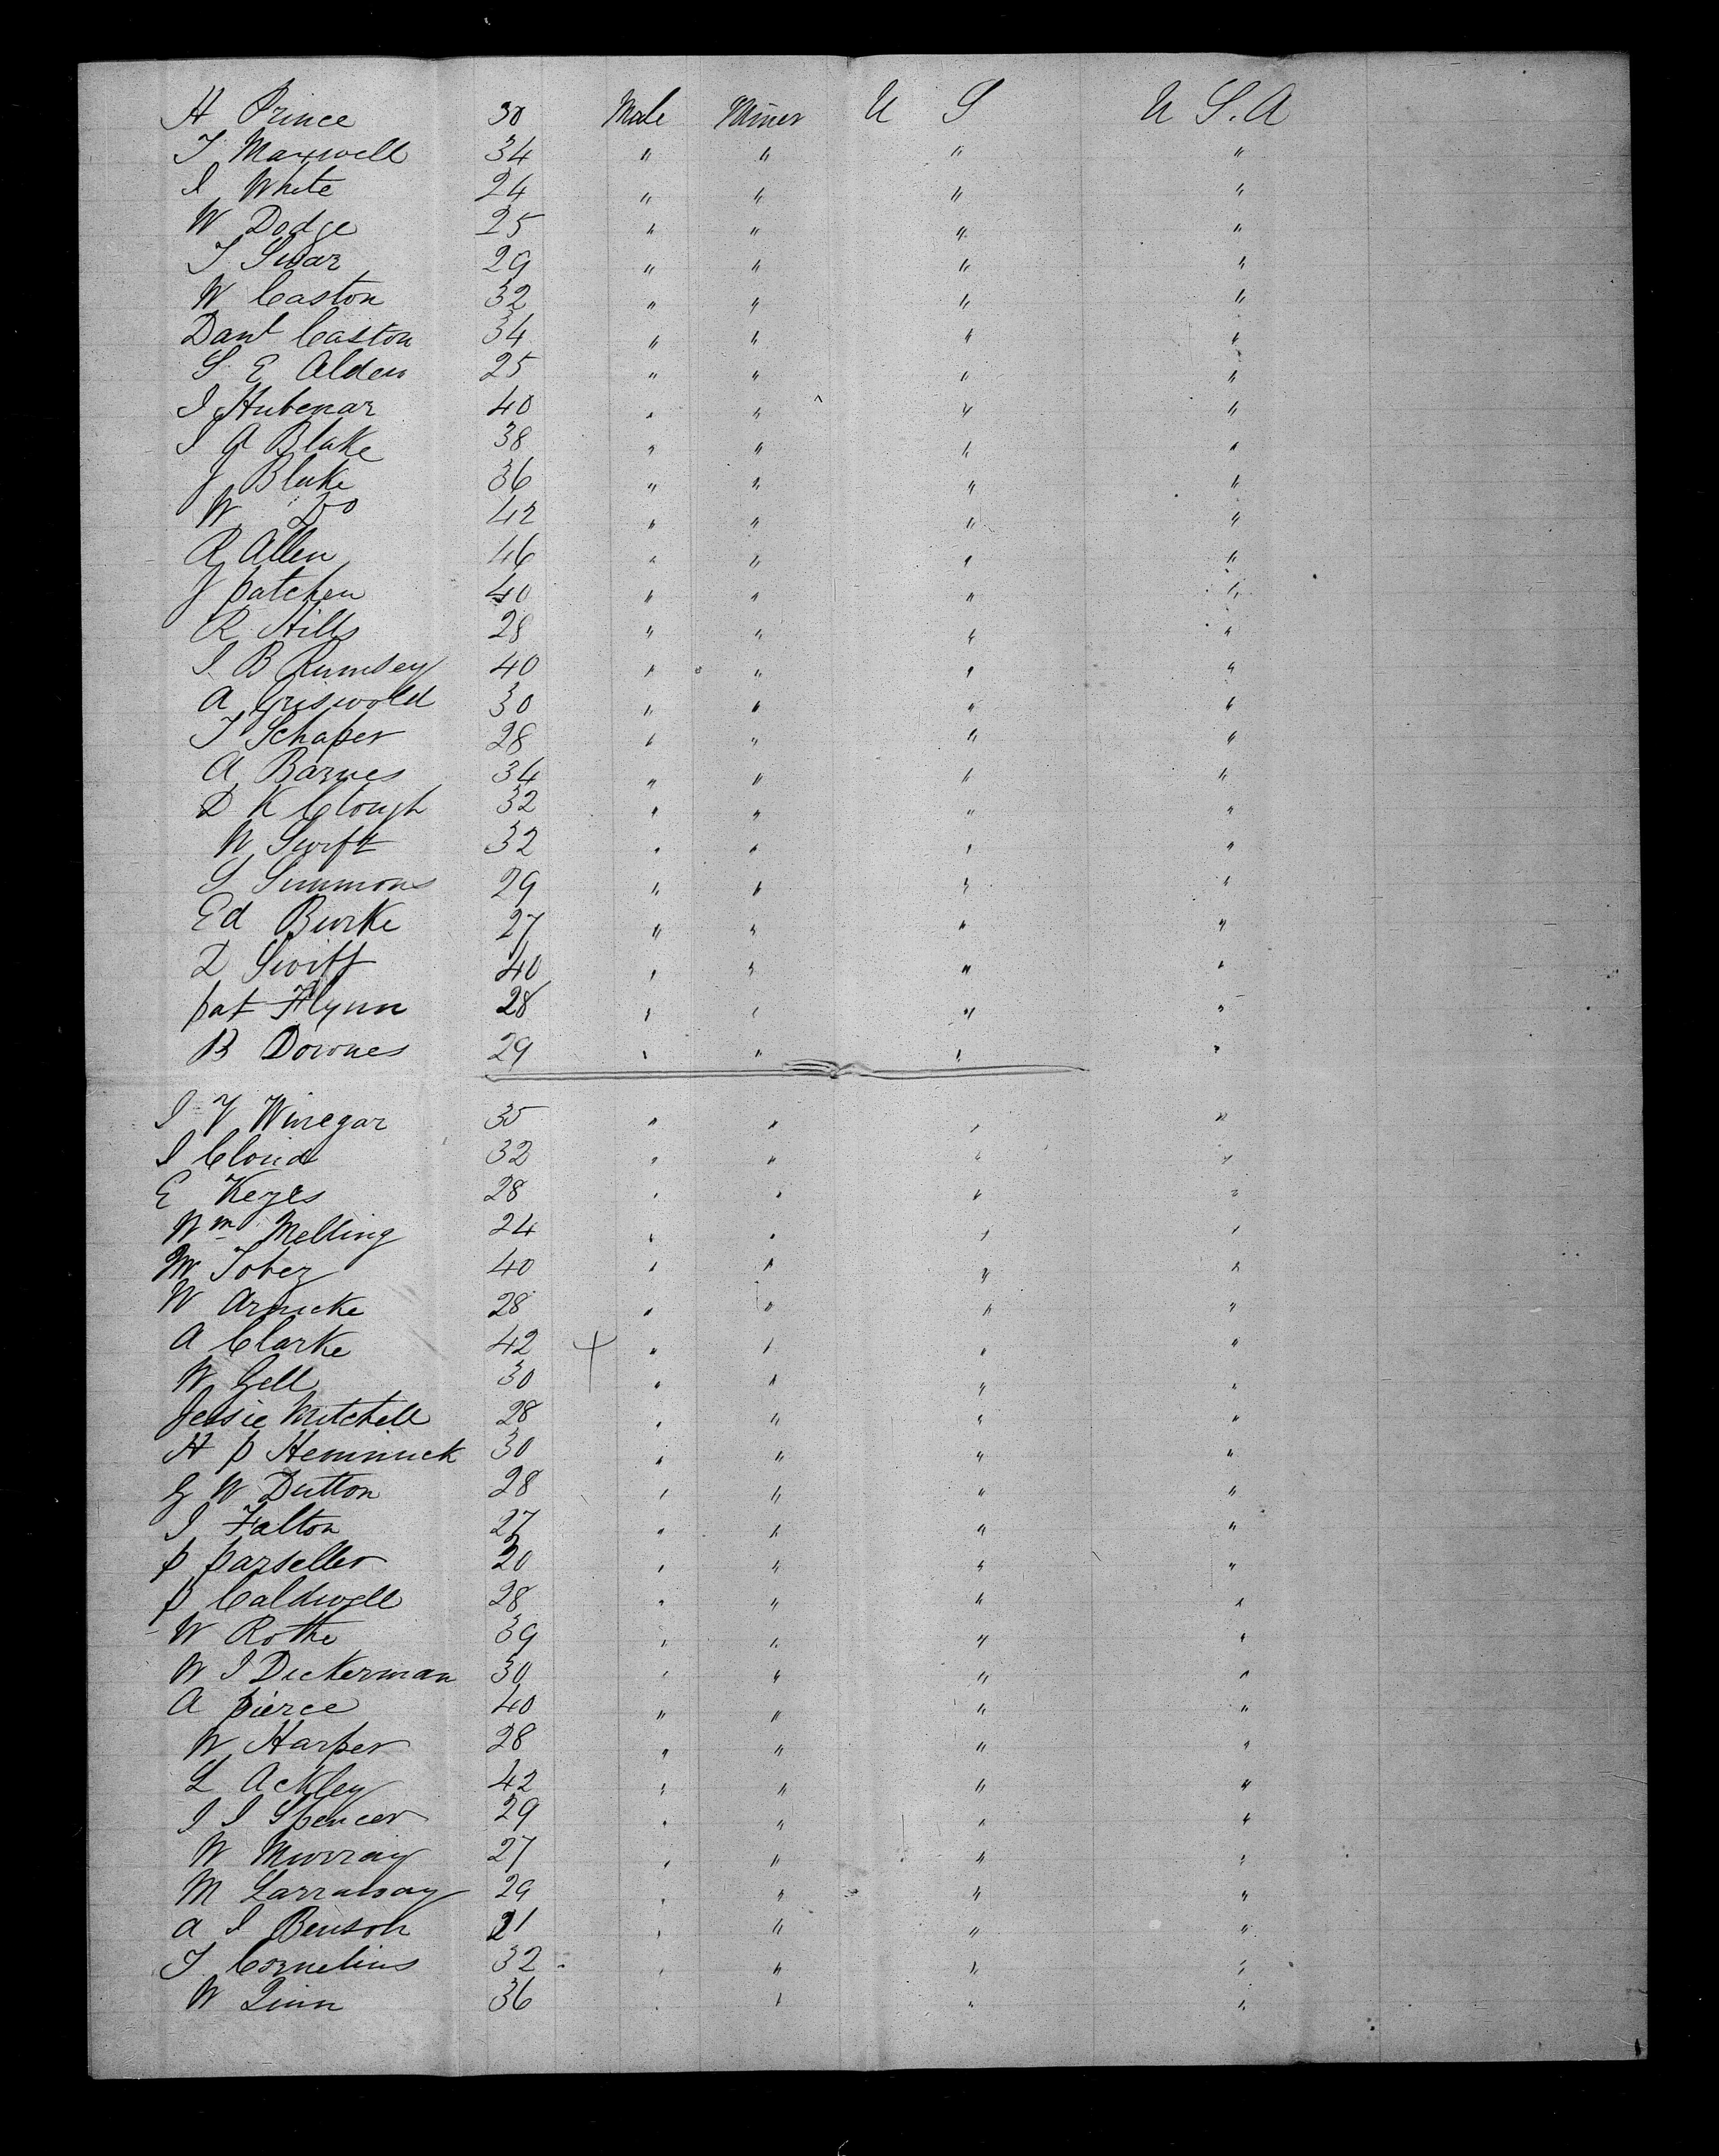 H Prince 30 Male Miner U S U S. A
T Maxwell 34 " " " "
I White 24 " " " "
W Dodge 25 " " " "
T Swar 29 " " " "
W Caston 32 " " " "
Danl Caston 34 " " " "
S E Alden 25 " " " "
I Hubenar 40 " " " "
I A Blake 38 " " " "
J Blake 36 " " " "
W Do 42 " " " "
R Allen 46 " " " "
J Patchen 40 " " " "
R Hills 28 " " " "
I B Rumsey 40 " " " "
A Griswold 30 " " " "
T Schaper 28 " " " "
A Barnes 34 " " " "
D K Clough 32 " " " "
N Swift 32 " " " "
S Simmons 29 " " " "
Ed Burke 27 " " " "
D Swift 40 " " " "
Pat Flynn 28 " " " "
B Downes 29 " " " "
I V Winegar 35 " " " "
I Cloud 32 " " " "
E Keyes 28 " " " "
Wm Melling 24 " " " "
M Tobey 40 " " " "
W Arnicke 28 " " " "
A Clarke 42 " " " "
W Gell 30 " " " "
Jessie Mitchell 28 " " " "
H P Heminuck 30 " " " "
G W Dutton 28 " " " "
I Falton 27 " " " "
P Parseller 20 " " " "
P Caldwell 28 " " " "
W Rothe 39 " " " "
W I Dickerman 30 " " " "
A Pierce 40 " " " "
W Harper 28 " " " "
L Ackley 42 " " " "
I I Spencer 29 " " " "
W Murray 27 " " " "
M 29 " " " "
A I Benson 21 " " " "
T Cornelius 32 " " " "
W Quin 36 " " " "